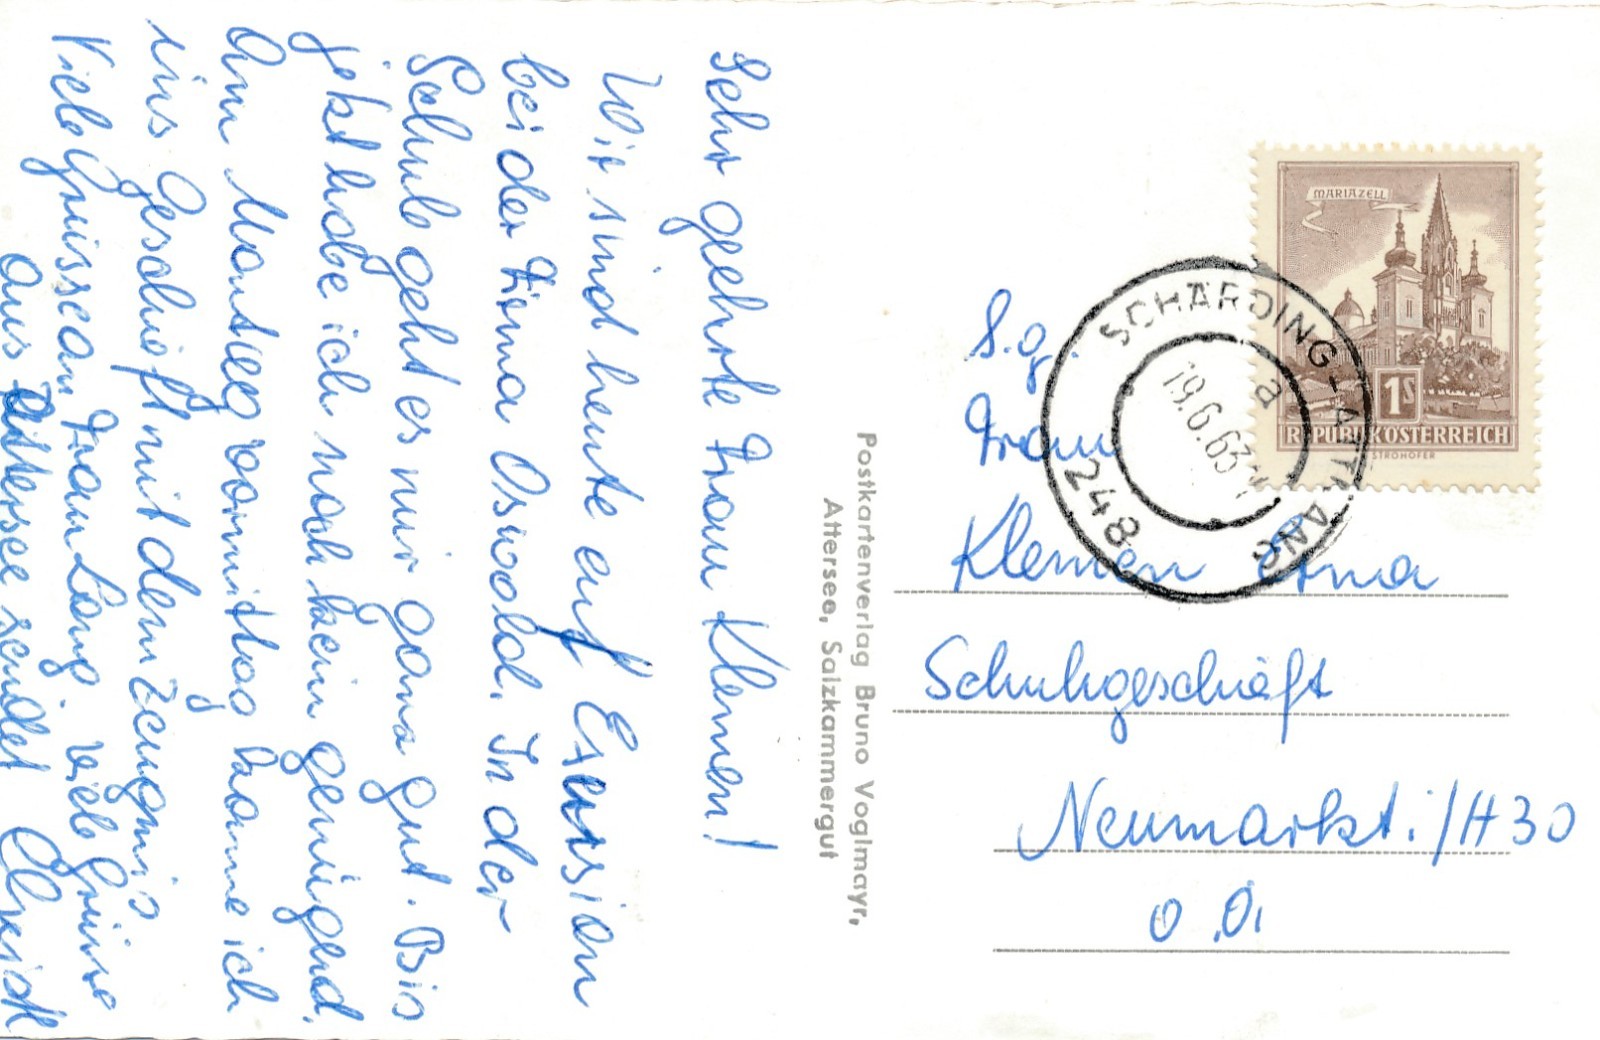 Sehr geehrte Frau Klemen!
Wir sind heute auf Exursion
bei der Firma Oswald. In der
Schule geht es mir ganz gut. Bis
jetzt habe ich noch kein genügend.
Am Montag vormittag komme ich
ins Geschäft mit dem Zeugnis
Viele Grüsse an Frau Lang. Viele Grüsse
aus Attersee sendet Christl
Postkartenverlag Bruno Voglmayr,
Attersee, Salzkammergut
MARIAZELL
1S
REPUBLIK ÖSTERREICH
STROHOFER
SCHÄRDING-ATTNANG
a
19.6.63
248
S.g.
Frau
Klemen
Schuhgeschäft
Neumarkt i/H 30
O.Ö.